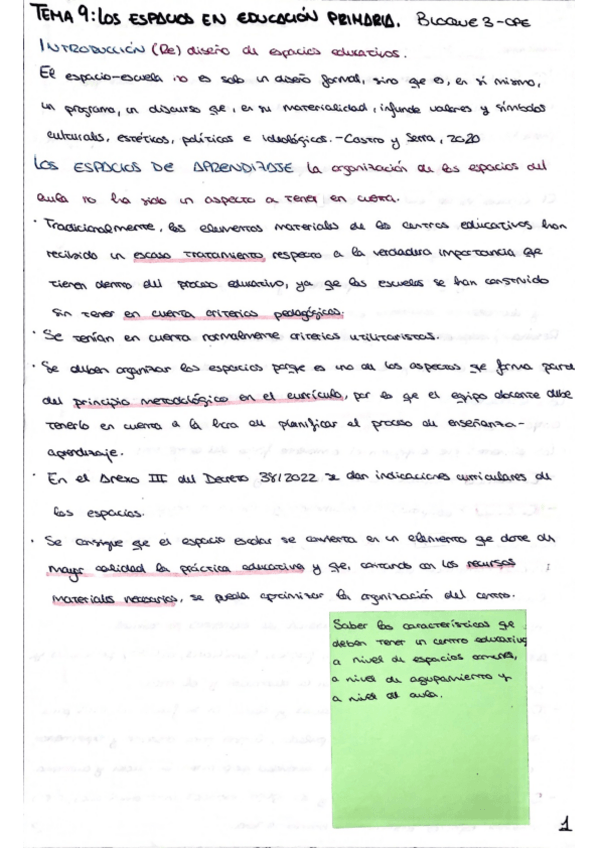 TEMA 9: LOS ESPACIOS EN EDUCACIÓN PRIMARIA. BLOQUE 3-OPE
INTRODUCCIÓN (Re) diseño de espacios educativos.
El espacio-escuela no es solo un diseño formal, sino que es, en sí mismo,
un programa, un discurso que, en su materialidad, infunde valores y símbolos
culturales, estéticos, políticos e ideológicos. - Castro y Serra, 2020
LOS ESPACIOS DE APRENDIZAJE La organización de los espacios del
aula no ha sido un aspecto a tener en cuenta.
· Tradicionalmente, los elementos materiales de los centros educativos han
recibido un escaso tratamiento respecto a la verdadera importancia que
tienen dentro del proceso educativo, ya que las escuelas se han construido
sin tener en cuenta criterios pedagógicos.
· Se tenían en cuenta normalmente criterios utilitaristas.
· Se deben organizar los espacios porque es uno de los aspectos que forma parte
del principio metodológico en el currículo, por lo que el equipo docente debe
tenerlo en cuenta a la hora de planificar el proceso de enseñanza-
aprendizaje.
· En el Anexo III del Decreto 38/2022 se dan indicaciones curriculares de
los espacios.
· Se consigue que el espacio escolar se convierta en un elemento que dote de
mayor calidad la práctica educativa y que, contando con los recursos
materiales necesarios, se pueda optimizar la organización del centro.
Saber las características que
deben tener un centro educativo
a nivel de espacios comunes,
a nivel de agrupamiento y
a nivel de aula.
1